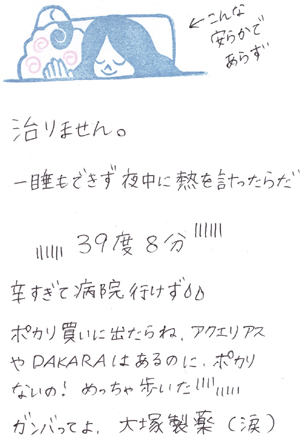 ←こんな
安らかで
あらず
治りません。
一睡もできず夜中に熱を計ったらだ
39度8分
辛すぎて病院行けず
ポカリ買いに出たらね、アクエリアス
やDAKARAはあるのに、ポカリ
ないの！めっちゃ歩いた
ガンバってよ、大塚製薬(涙)